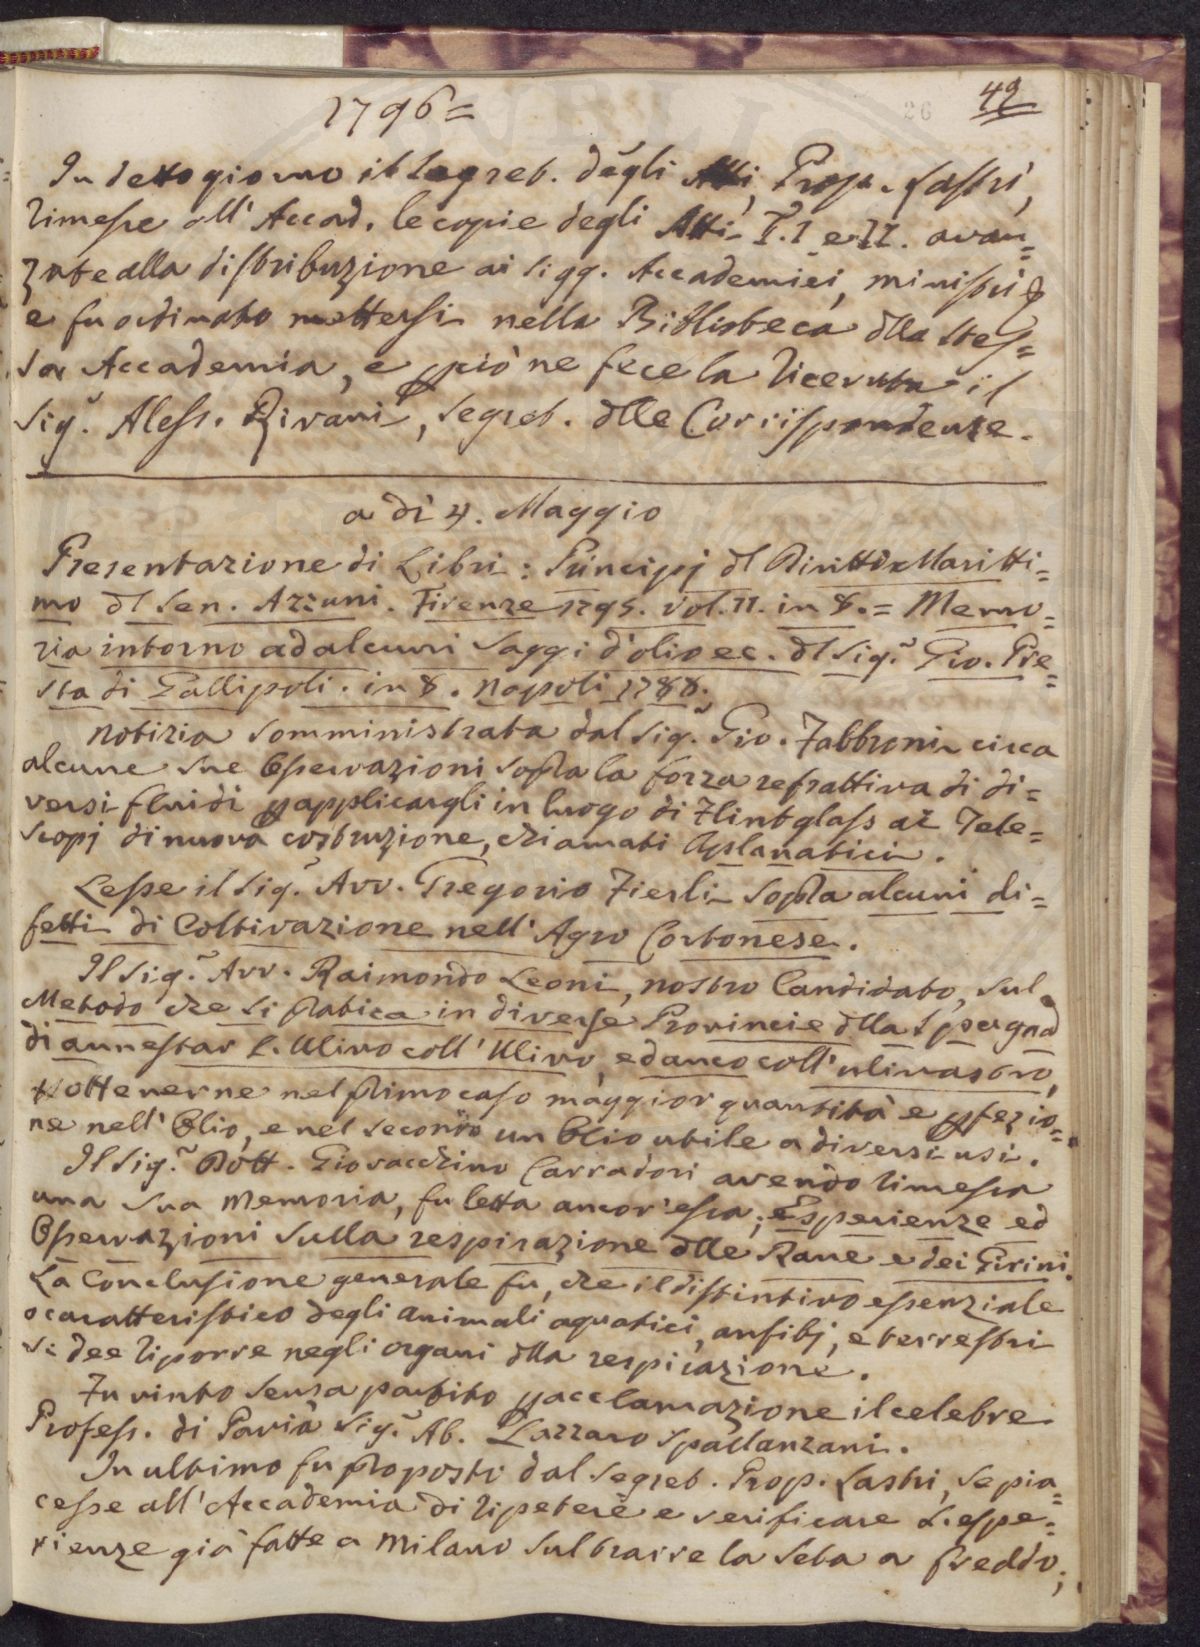 1796=
49
26
In detto giorno il Segret. degli Atti, Prop. Lastri,
rimesse all' Accad. le copie degli Atti T. I e II. avan=
zate alla distribuzione ai Sigg. Accademici, ministri &
e fu ordinato mettersi nella Biblioteca dlla stes=
sa Accademia, e p ciò ne fece la ricevuta il
Sig.r Aless. Rivani, Segret. dlle Corrispondenze.
a dì 4. Maggio
Presentazione di Libri: Principj dl Diritto Maritti=
mo dl Sen. Azzuni. Firenze 1795. Vol. II. in 8. = Memo=
ria intorno ad alcuni Saggi d'olio ec. dl Sig.r Gio. Pre=
sta di Gallipoli. in 8. Napoli 1788.
Notizia somministrata dal Sig.r Gio. Fabbroni circa
alcune sue Osservazioni sopra la forza refrattiva di di=
versi fluidi p applicargli in luogo di Flintglass ai Tele=
scopj di nuova costruzione, chiamati Aplanatici.
Lesse il Sig.r Avv. Gregorio Fierli sopra alcuni di=
fetti di Coltivazione nell' Agro Cortonese.
Il Sig.r Avv. Raimondo Leoni, nostro Candidato, sul
Metodo che si pratica in diverse Provincie dlla Spagna
di annestar l'Ulivo coll' Ulivo, ed anco coll' ulivastro,
p ottenerne nel primo caso maggior quantità e pfezio=
ne nell' Olio, e nel secondo un Olio utile a diversi usi.
Il Sig.r Dott. Giovacchino Carradori avendo rimessa
una sua Memoria, fu letta ancor'essa; Esperienze ed
Osservazioni sulla respirazione dlle Rane e dei Girini.
La Conclusione generale fu, che il distintivo essenziale
o caratteristico degli animali aquatici, anfibj, e terrestri
si dee riporre negli organi dlla respirazione.
Fu vinto senza partito p acclamazione il celebre
Profess. di Pavia Sig.r Ab. Lazzaro Spallanzani.
In ultimo fu proposto dal Segret. Prop. Lastri, se pia=
cesse all' Accademia di ripetere e verificare l'espe=
rienze già fatte a Milano sul trarre la seta a freddo;